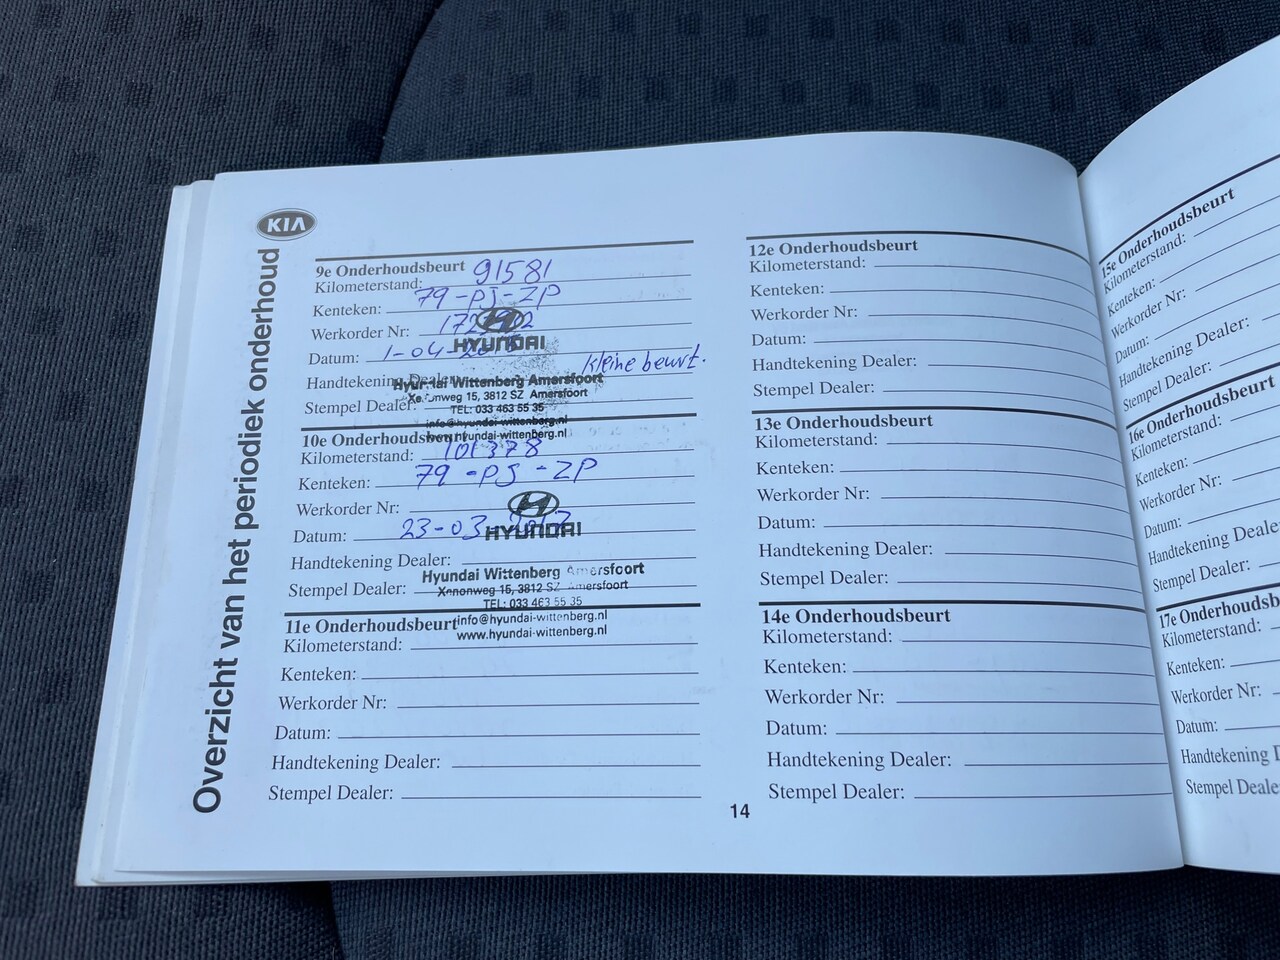 KIA
Overzicht van het periodiek onderhoud
9e Onderhoudsbeurt
Kilometerstand: 91581
Kenteken: 79-PJ-ZP
Werkorder Nr:
HYUNDAI
Datum: 1-04-
kleine beurt.
Handtekening Dealer:
Hyundai Wittenberg Amersfoort
Xenonweg 15, 3812 SZ Amersfoort
Stempel Dealer:
TEL: 033 463 55 35
info@hyundai-wittenberg.nl
www.hyundai-wittenberg.nl
10e Onderhoudsbeurt
Kilometerstand: 101378
Kenteken: 79-PJ-ZP
Werkorder Nr:
Datum: 23-03-2017
HYUNDAI
Handtekening Dealer:
Hyundai Wittenberg Amersfoort
Stempel Dealer:
Xenonweg 15, 3812 SZ Amersfoort
TEL: 033 463 55 35
info@hyundai-wittenberg.nl
www.hyundai-wittenberg.nl
11e Onderhoudsbeurt
Kilometerstand:
Kenteken:
Werkorder Nr:
Datum:
Handtekening Dealer:
Stempel Dealer:
12e Onderhoudsbeurt
Kilometerstand:
Kenteken:
Werkorder Nr:
Datum:
Handtekening Dealer:
Stempel Dealer:
13e Onderhoudsbeurt
Kilometerstand:
Kenteken:
Werkorder Nr:
Datum:
Handtekening Dealer:
Stempel Dealer:
14e Onderhoudsbeurt
Kilometerstand:
Kenteken:
Werkorder Nr:
Datum:
Handtekening Dealer:
Stempel Dealer:
14
15e Onderhoudsbeurt
Kilometerstand:
Kenteken:
Werkorder Nr:
Datum:
Handtekening Dealer:
Stempel Dealer:
16e Onderhoudsbeurt
Kilometerstand:
Kenteken:
Werkorder Nr:
Datum:
Handtekening Deale
Stempel Dealer:
17e Onderhoudsb
Kilometerstand:
Kenteken:
Werkorder Nr:
Datum:
Handtekening D
Stempel Deale